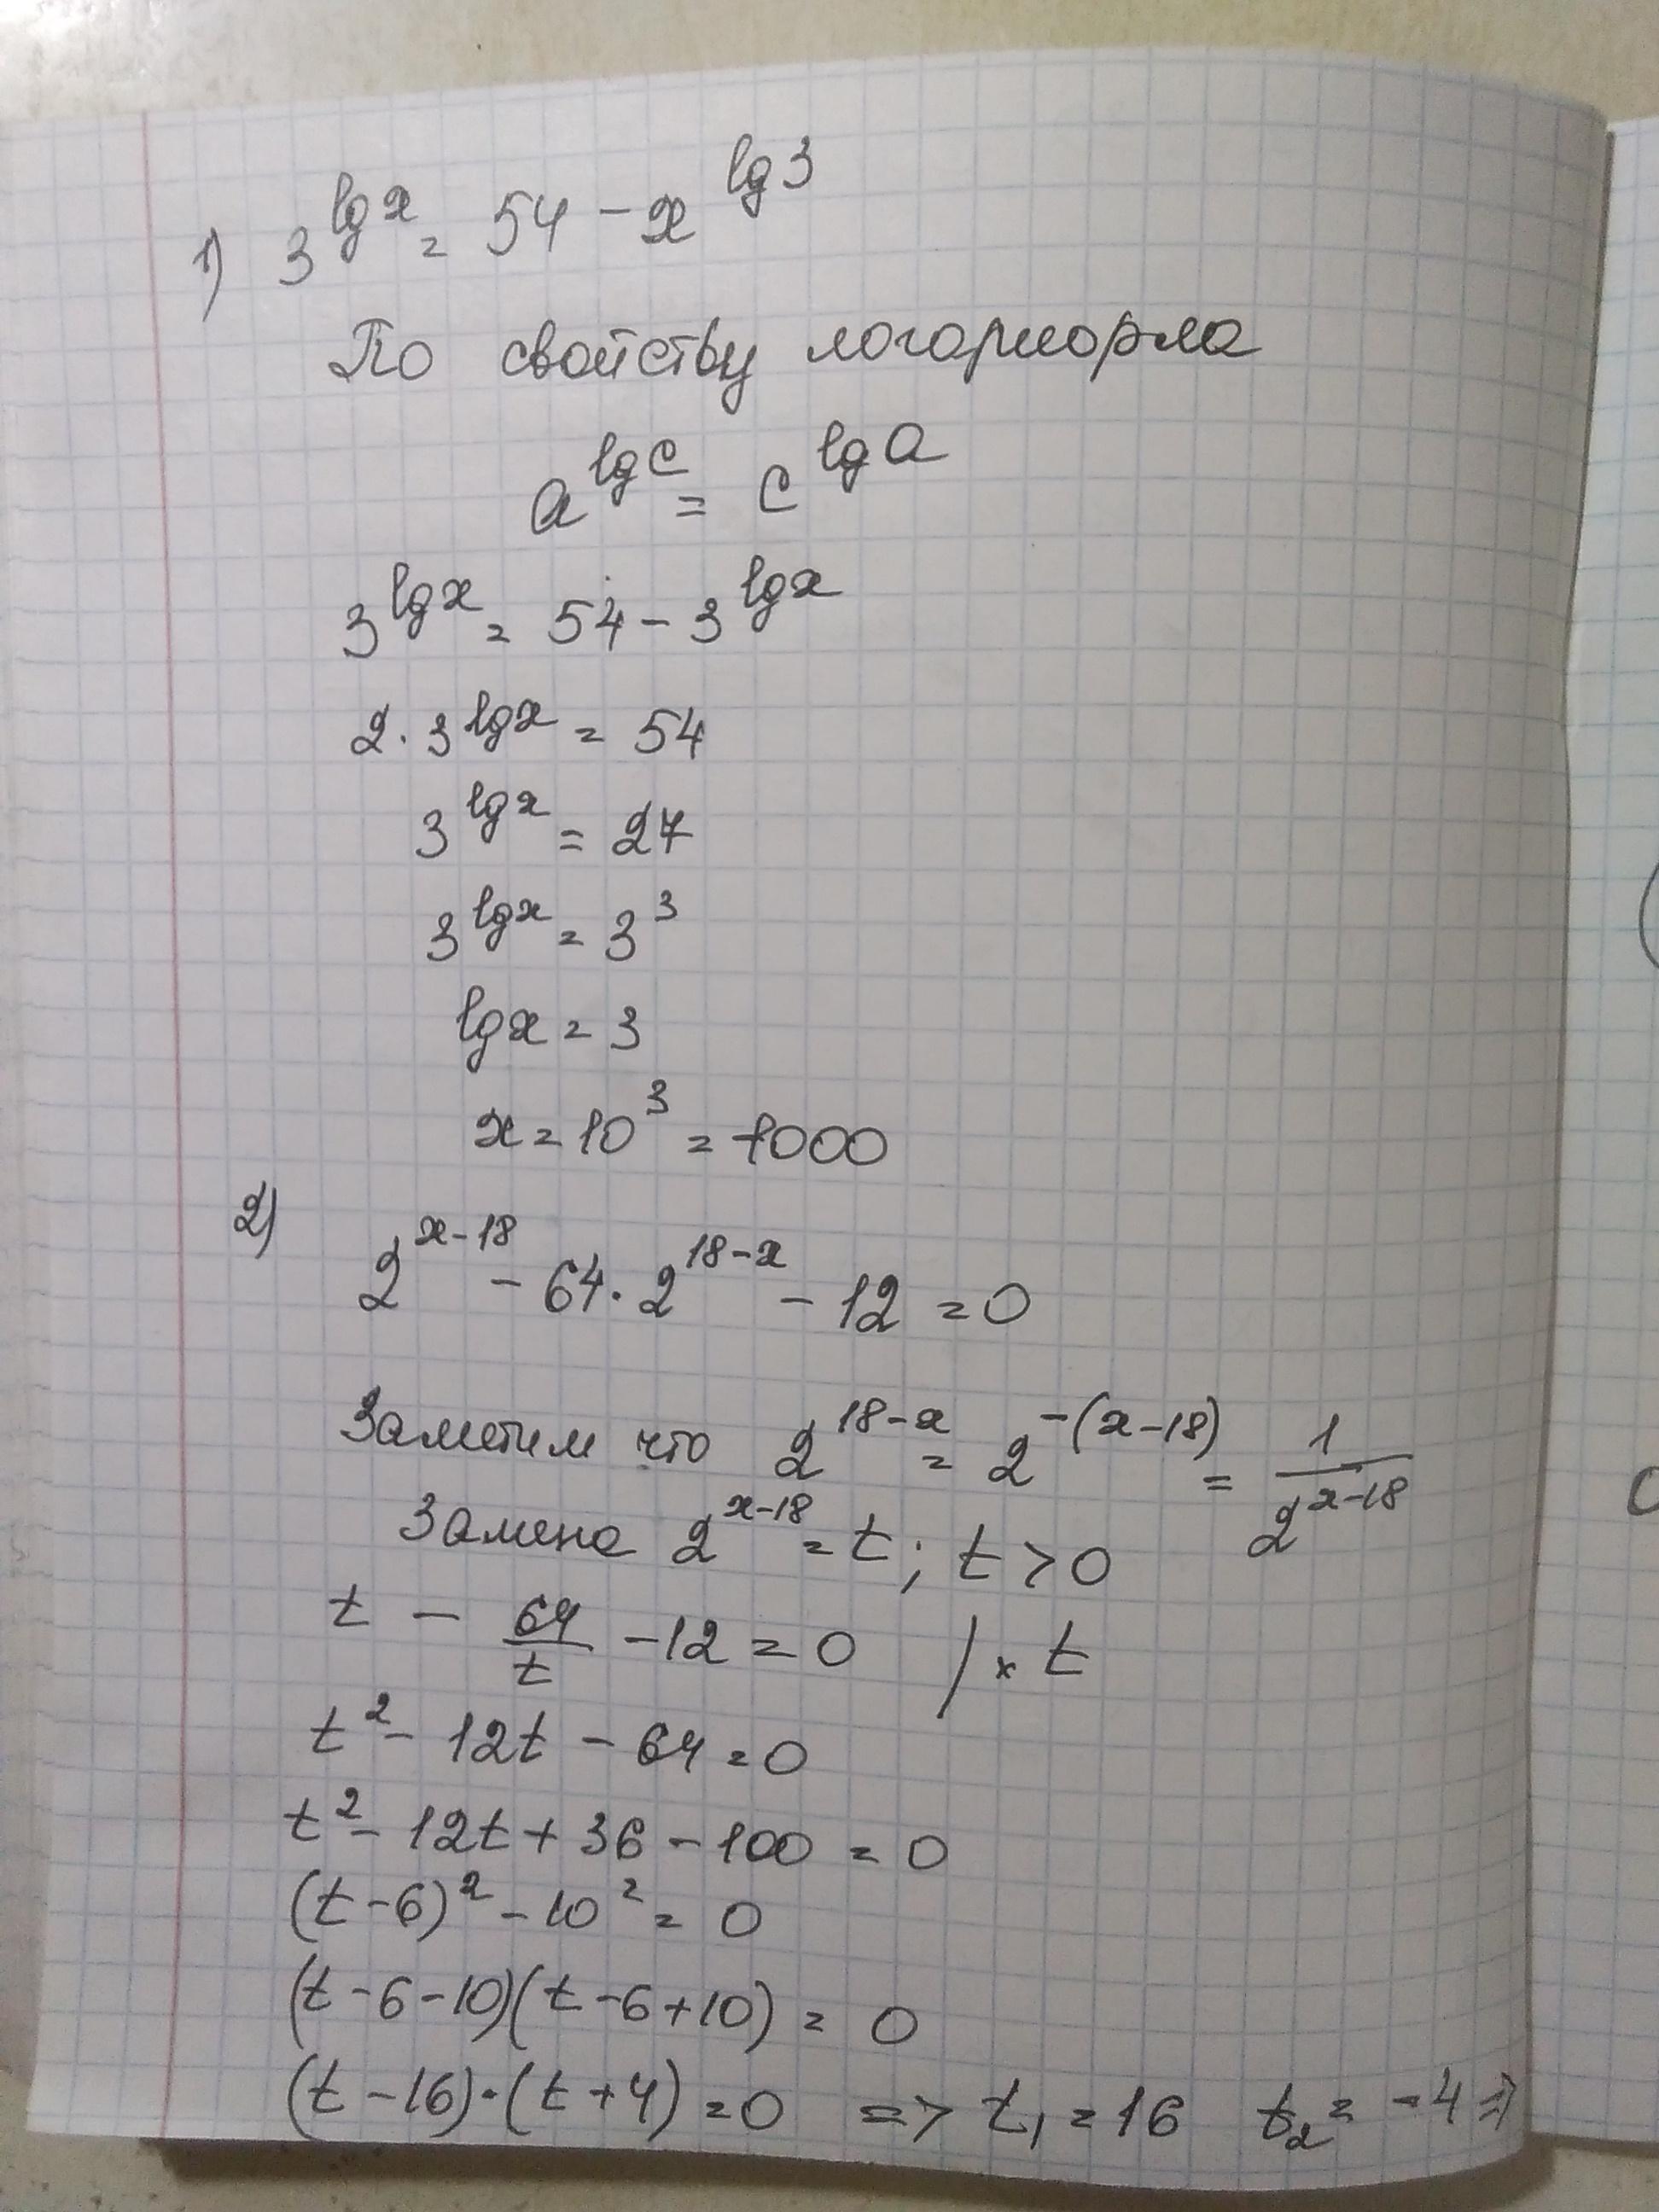 1) 3^{lg x} = 54 - x^{lg 3}
По свойству логорифма
a^{lg c} = c^{lg a}
3^{lg x} = 54 - 3^{lg x}
2 · 3^{lg x} = 54
3^{lg x} = 27
3^{lg x} = 3^3
lg x = 3
x = 10^3 = 1000
2)
2^{x-18} - 64 · 2^{18-x} - 12 = 0
Заметим что 2^{18-x} = 2^{-(x-18)} = \frac{1}{2^{x-18}}
Замена 2^{x-18} = t; t > 0
t - \frac{64}{t} - 12 = 0 / × t
t^2 - 12t - 64 = 0
t^2 - 12t + 36 - 100 = 0
(t-6)^2 - 10^2 = 0
(t-6-10)(t-6+10) = 0
(t-16)·(t+4) = 0 => t_1 = 16 t_2 = -4 =>